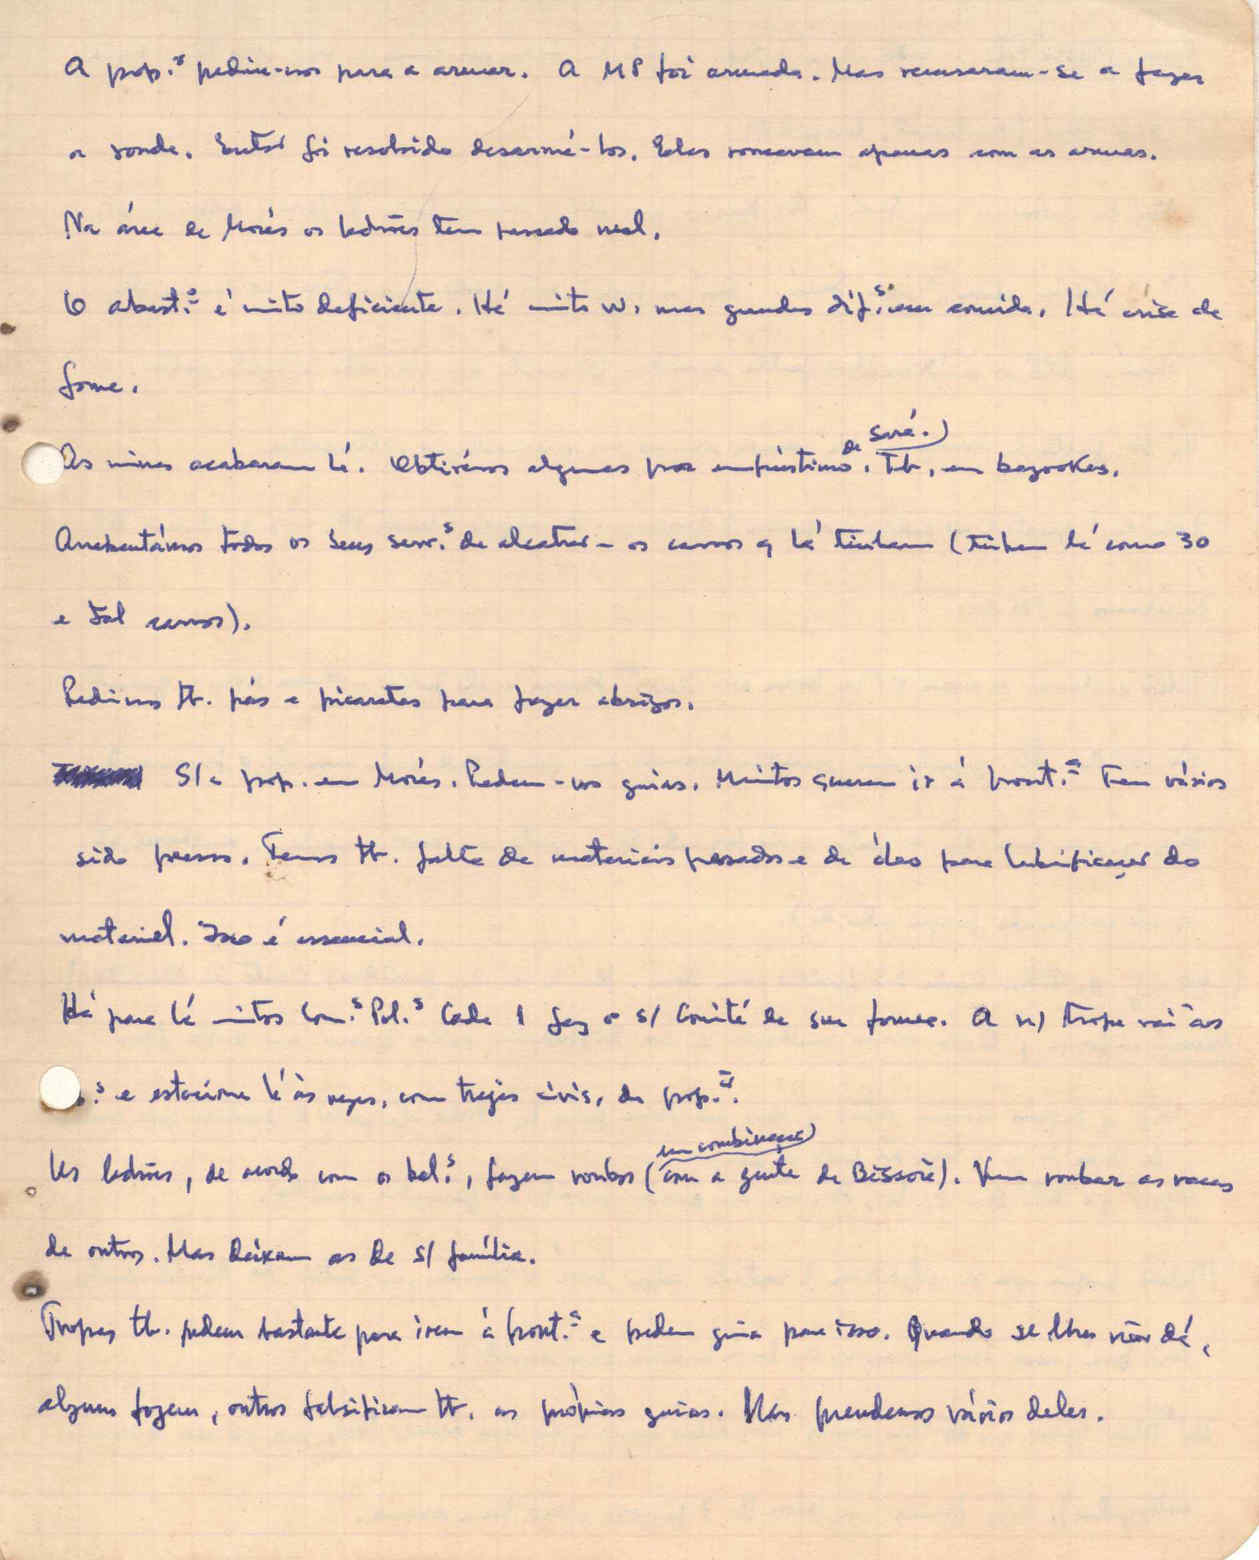 A pop.ª pediu-nos para a armar. A MP foi armada. Mas recusaram-se a fazer
a ronda. Então foi resolvido desarmá-los. Eles roncavam apenas com as armas.
Na área de Morés os ladrões tem passado mal.
O abast.º é muito deficiente. Há muito w, mas grandes dif.s em comida. Há crise de
fome.
As minas acabaram lá. Obtivémos algumas por empréstimo de Sará. Tb. em bazookas.
Arrebentámos todos os seus serv.s de alcatrar - os carros q lá tinham (tinham lá como 30
e tal carros).
Pedimos tb. pás e picaretas para fazer abrigos.
S/ a pop. em Morés. Pedem-nos guias. Muitos querem ir à front.ª Tem vários
sido presos. Temos tb. falta de materiais pesados e de óleo para lubrificaçar do
material. Isso é essencial.
Há para lá muitos Com.s Pol.s Cada 1 faz o s/ Comité de sua forma. A n/ tropa vai às
.s e estaciona lá às vezes, com trajes civis, da pop.ª.
Us ladrões, de acordo com os bal.s, fazem roubos (em combinação com a gente de Bissorã). Vem roubar as vacas
de outros. Mas deixam as de s/ família.
Tropas tb. pedem bastante para irem à front.ª e pedem guia para isso. Quando se lhes não dá,
alguns fogem, outros falsificam tb. as próprias guias. Mas prendemos vários deles.